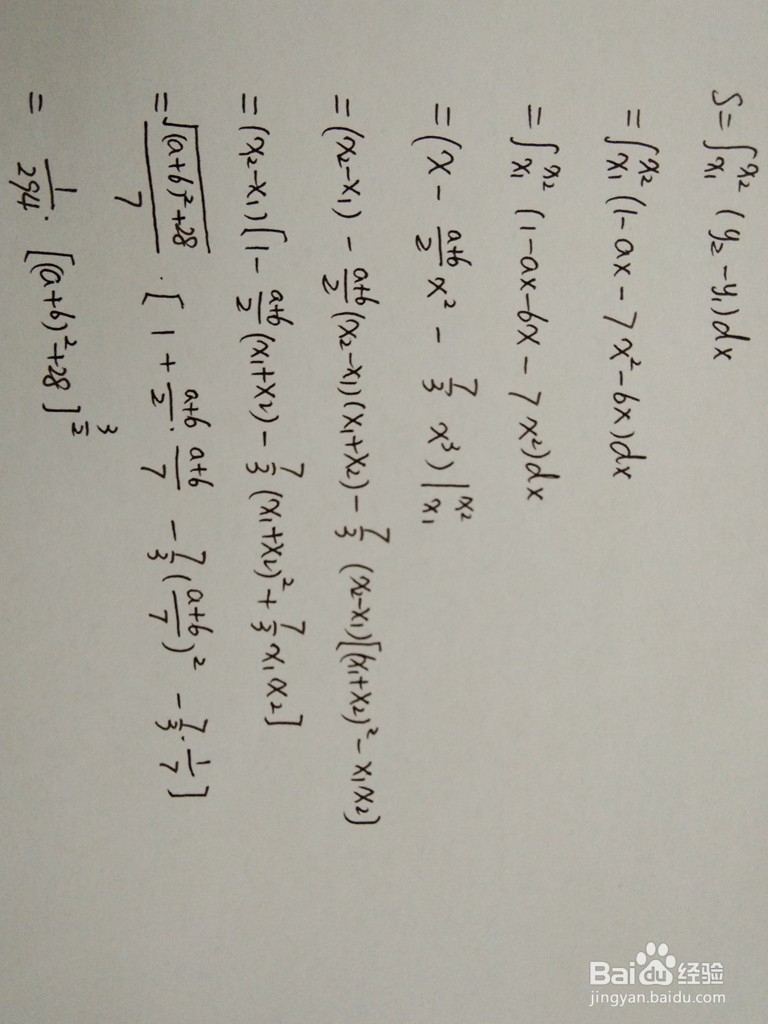 S = ∫_{x₁}^{x₂} (y₂ - y₁)dx
= ∫_{x₁}^{x₂} (1 - ax - 7x² - bx)dx
= ∫_{x₁}^{x₂} (1 - ax - bx - 7x²)dx
= (x - \frac{a+b}{2} x² - \frac{7}{3} x³) |_{x₁}^{x₂}
= (x₂ - x₁) - \frac{a+b}{2} (x₂ - x₁)(x₁ + x₂) - \frac{7}{3} (x₂ - x₁)[(x₁ + x₂)² - x₁x₂]
= (x₂ - x₁)[1 - \frac{a+b}{2} (x₁ + x₂) - \frac{7}{3} (x₁ + x₂)² + \frac{7}{3} x₁x₂]
= \frac{\sqrt{(a+b)² + 28}}{7} · [1 + \frac{a+b}{2} · \frac{a+b}{7} - \frac{7}{3} (\frac{a+b}{7})² - \frac{7}{3} · \frac{1}{7}]
= \frac{1}{294} · [(a+b)² + 28]^{\frac{3}{2}}
Baidu经验
jingyan.baidu.com